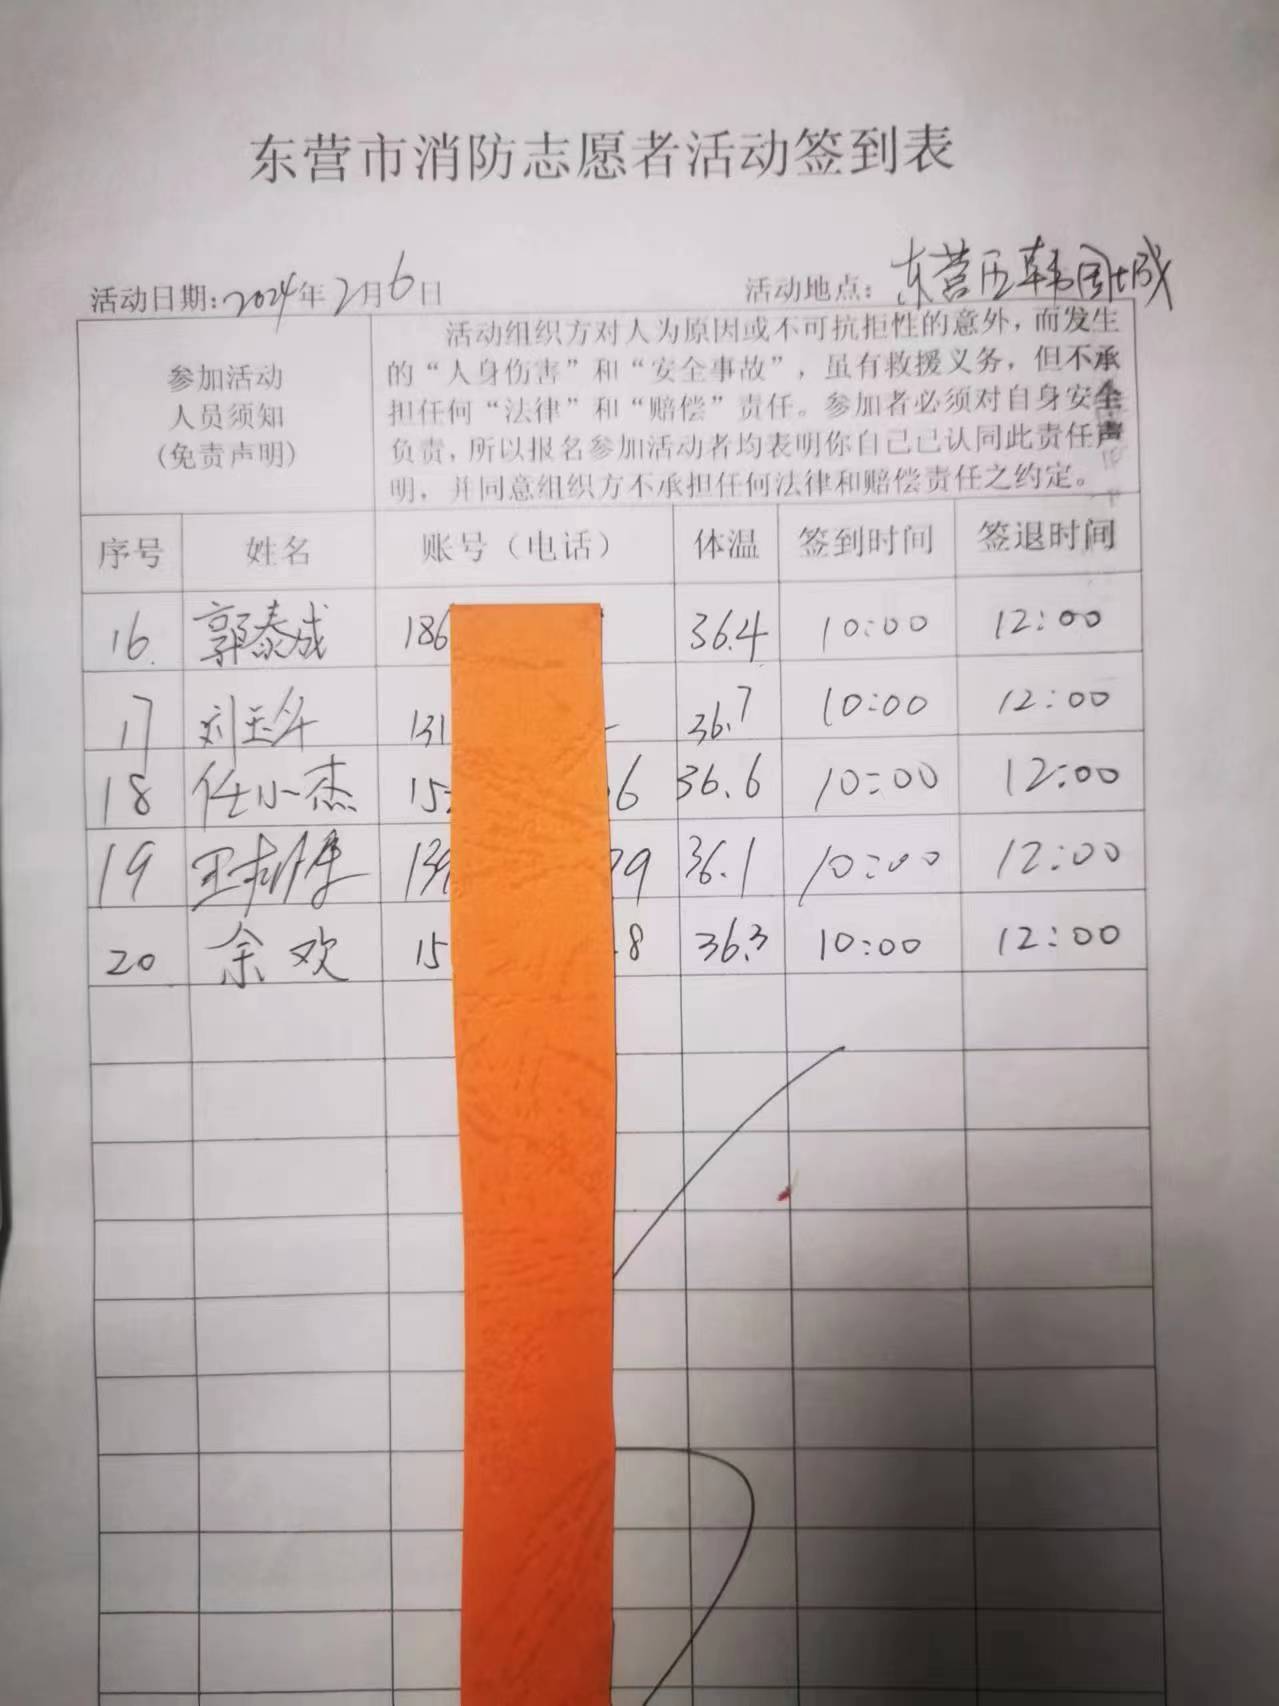 东营市消防志愿者活动签到表
活动日期:2024年2月6日 活动地点:东营区韩国城
参加活动
人员须知
(免责声明)
活动组织方对人为原因或不可抗拒性的意外，而发生
的“人身伤害”和“安全事故”，虽有救援义务，但不承
担任何“法律”和“赔偿”责任。参加者必须对自身安全
负责，所以报名参加活动者均表明你自己已认同此责任声
明，并同意组织方不承担任何法律和赔偿责任之约定。
序号 姓名 账号（电话） 体温 签到时间 签退时间
16. 郭泰成 186 36.4 10:00 12:00
17 刘玉 131 36.7 10:00 12:00
18 任小杰 15 6 36.6 10:00 12:00
19 王 139 79 36.1 10:00 12:00
20 余欢 15 8 36.3 10:00 12:00